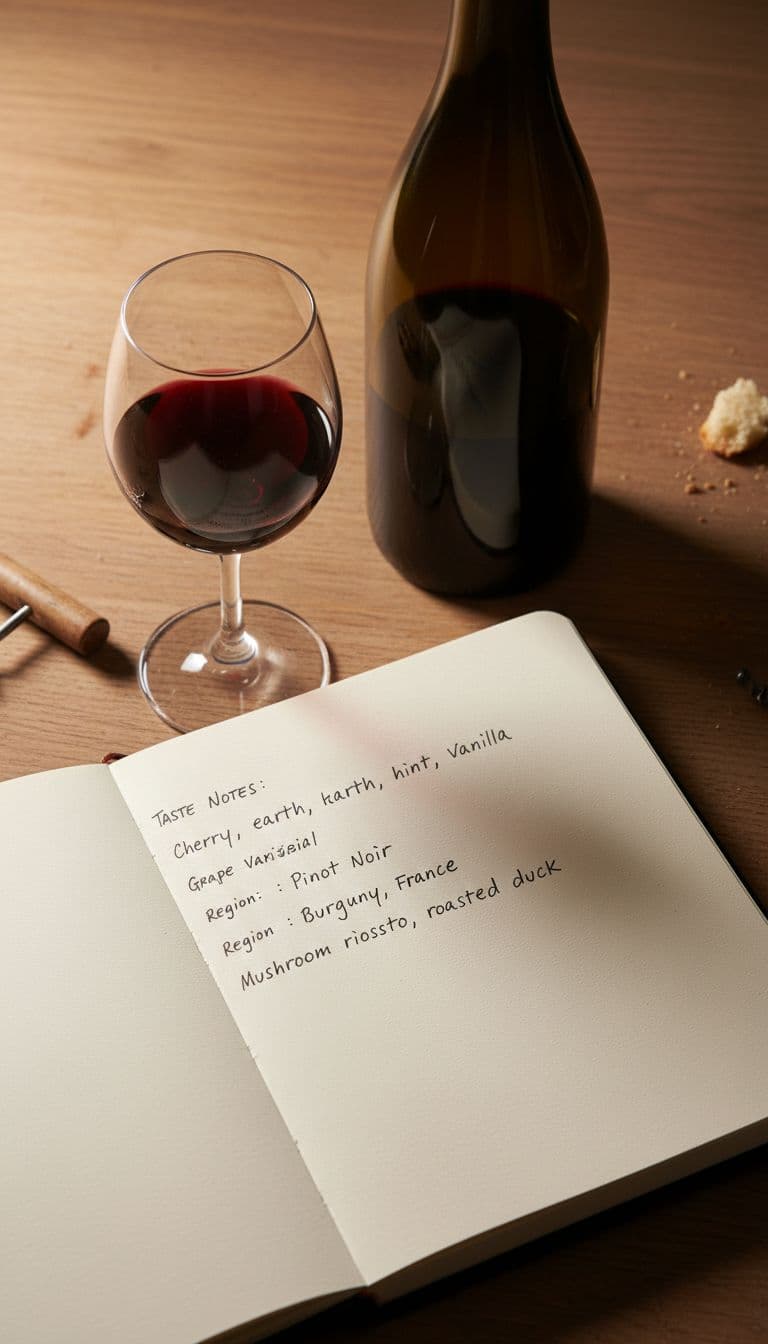 TASTE NOTES:
Cherry, earth, karth, hint, Vanilla
Grape Variseial
Region: : Pinot Noir
Region : Burguny, France
Mushroom riossto, roasted duck